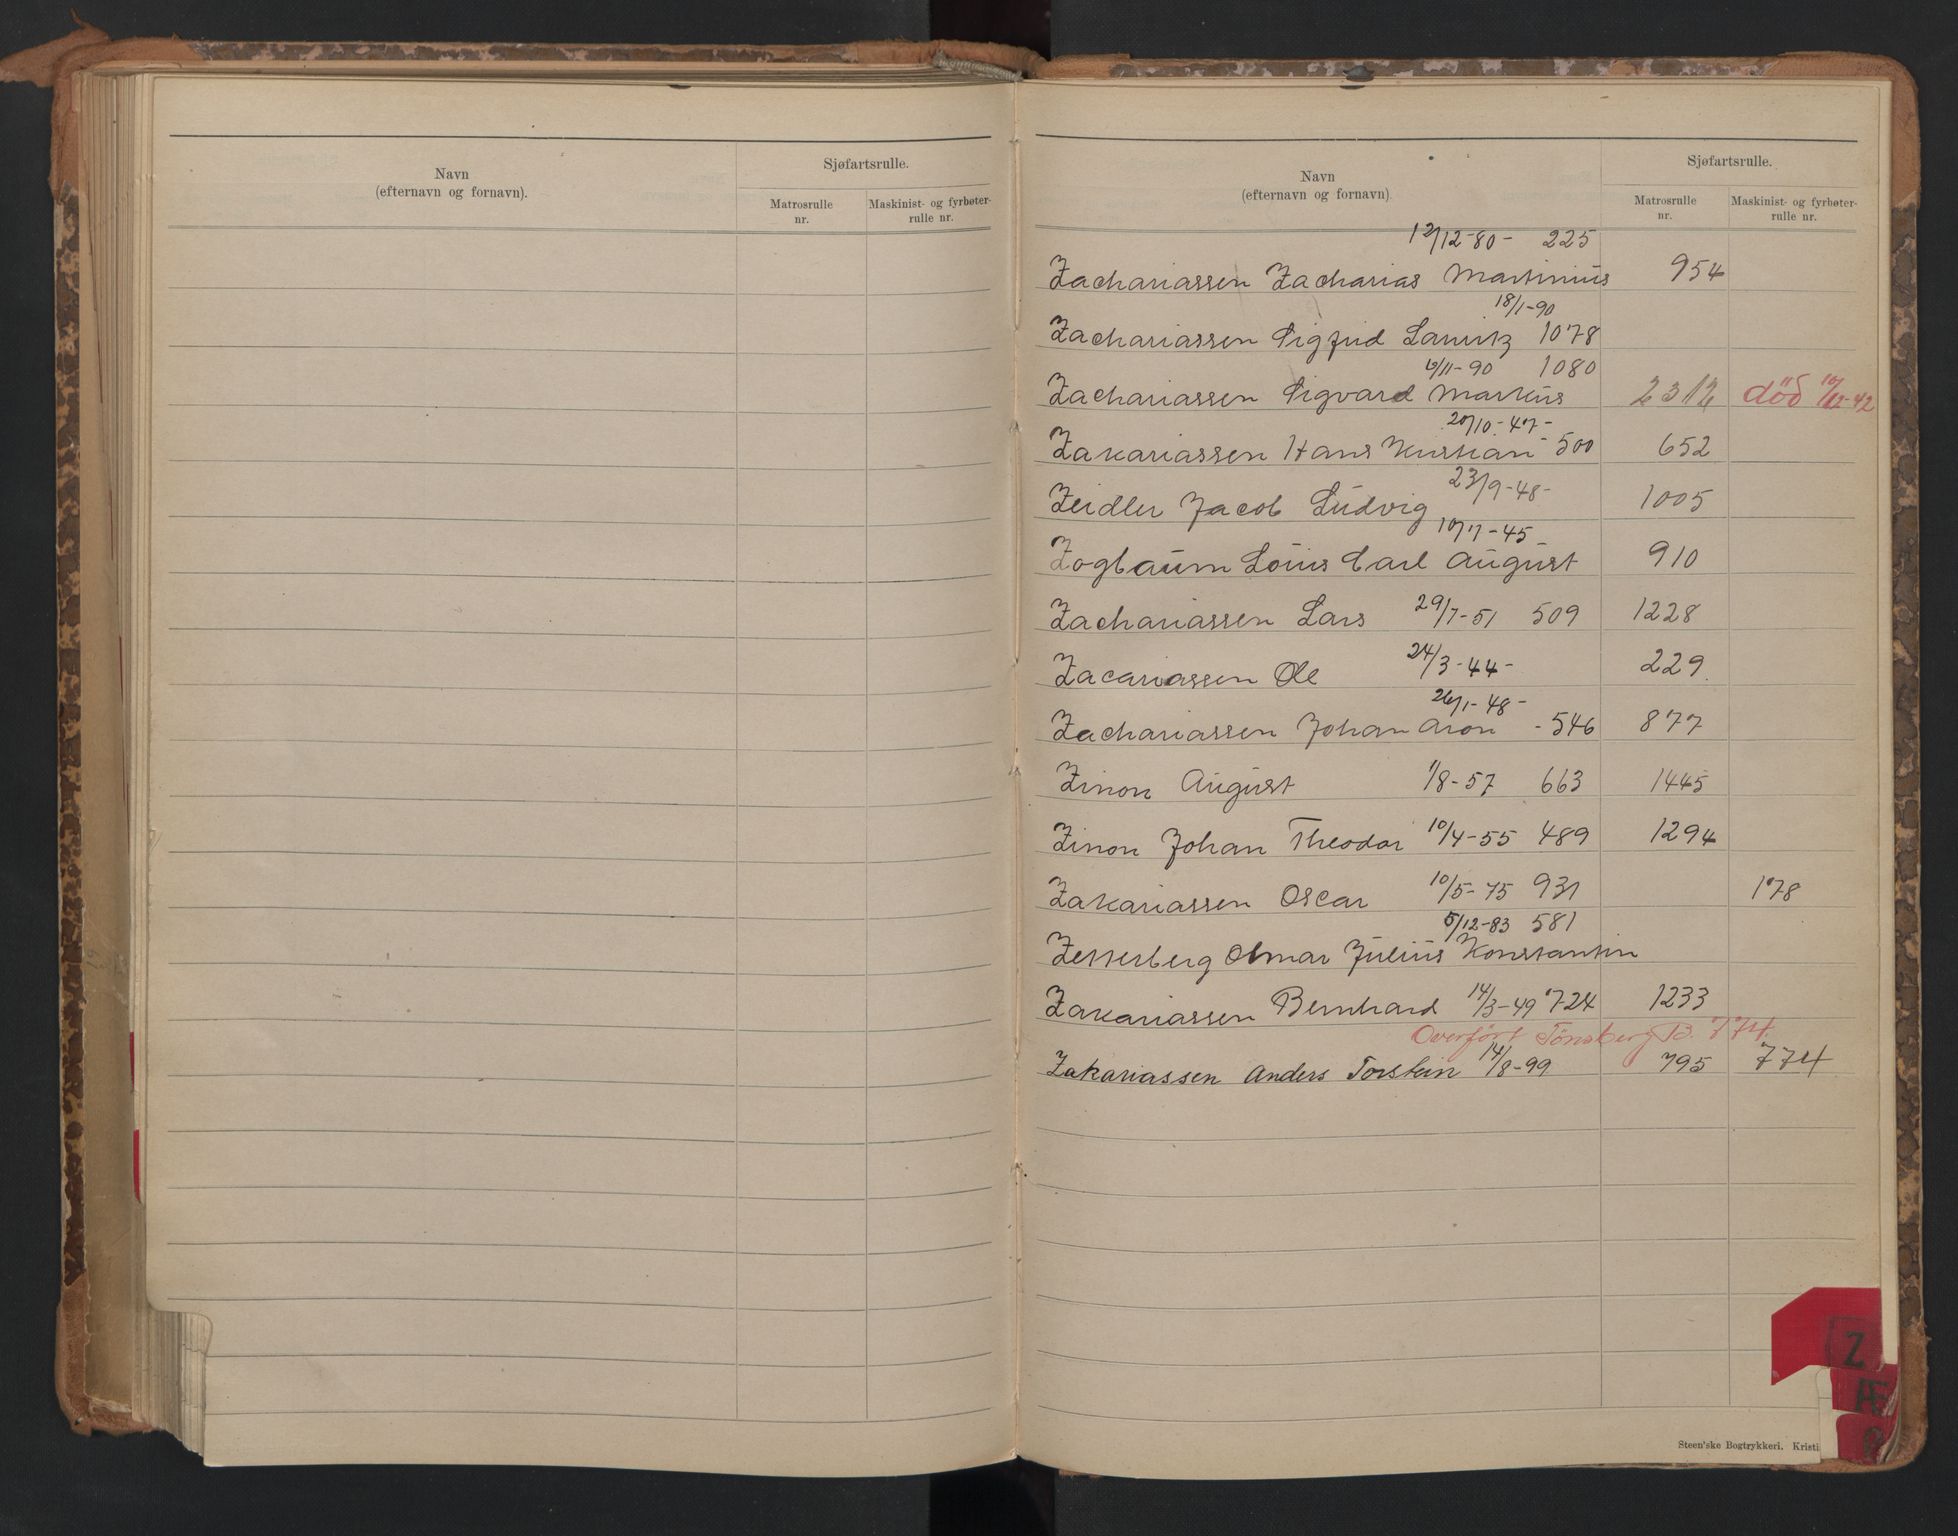 Navn
(efternavn og fornavn).
Sjøfartsrulle.
Matrosrulle
nr.
Maskinist- og fyrbøter-
rulle nr.
Navn
(efternavn og fornavn).
Sjøfartsrulle.
Matrosrulle
nr.
Maskinist- og fyrbøter-
rulle nr.
12/12-80- 225
Zachariassen Zacharias Martinius 954
18/1-90
Zachariassen Sigfrid 1078
6/11-90 1080
Zachariassen Sigvard Markus 2312 död 10/12-42
20/10-47-
Zakariassen Hans Kristian - 500 652
23/9-48-
Zeidler Jacob Ludvig 1005
10/7-45
Zogbaum Louis Carl August 910
Zachariassen Lars 29/7-51 509 1228
Zacariassen Ole 24/3-44- 229
26/1-48-
Zachariassen Johan Aron - 546 877
Zinon August 1/8-57 663 1445
Zinon Johan Theodor 10/4-55 489 1294
Zakariassen Oscar 10/5-75 931 178
5/12-83 581
Zetterberg Olmar Julius Konstantin
Zakariassen Bernhard 14/3-49 724 1233
Overført Tönsberg B. 774.
Zakariassen Anders Torstein 14/8-99 795 774
Steen'ske Bogtrykkeri. Kristi
Z
Æ